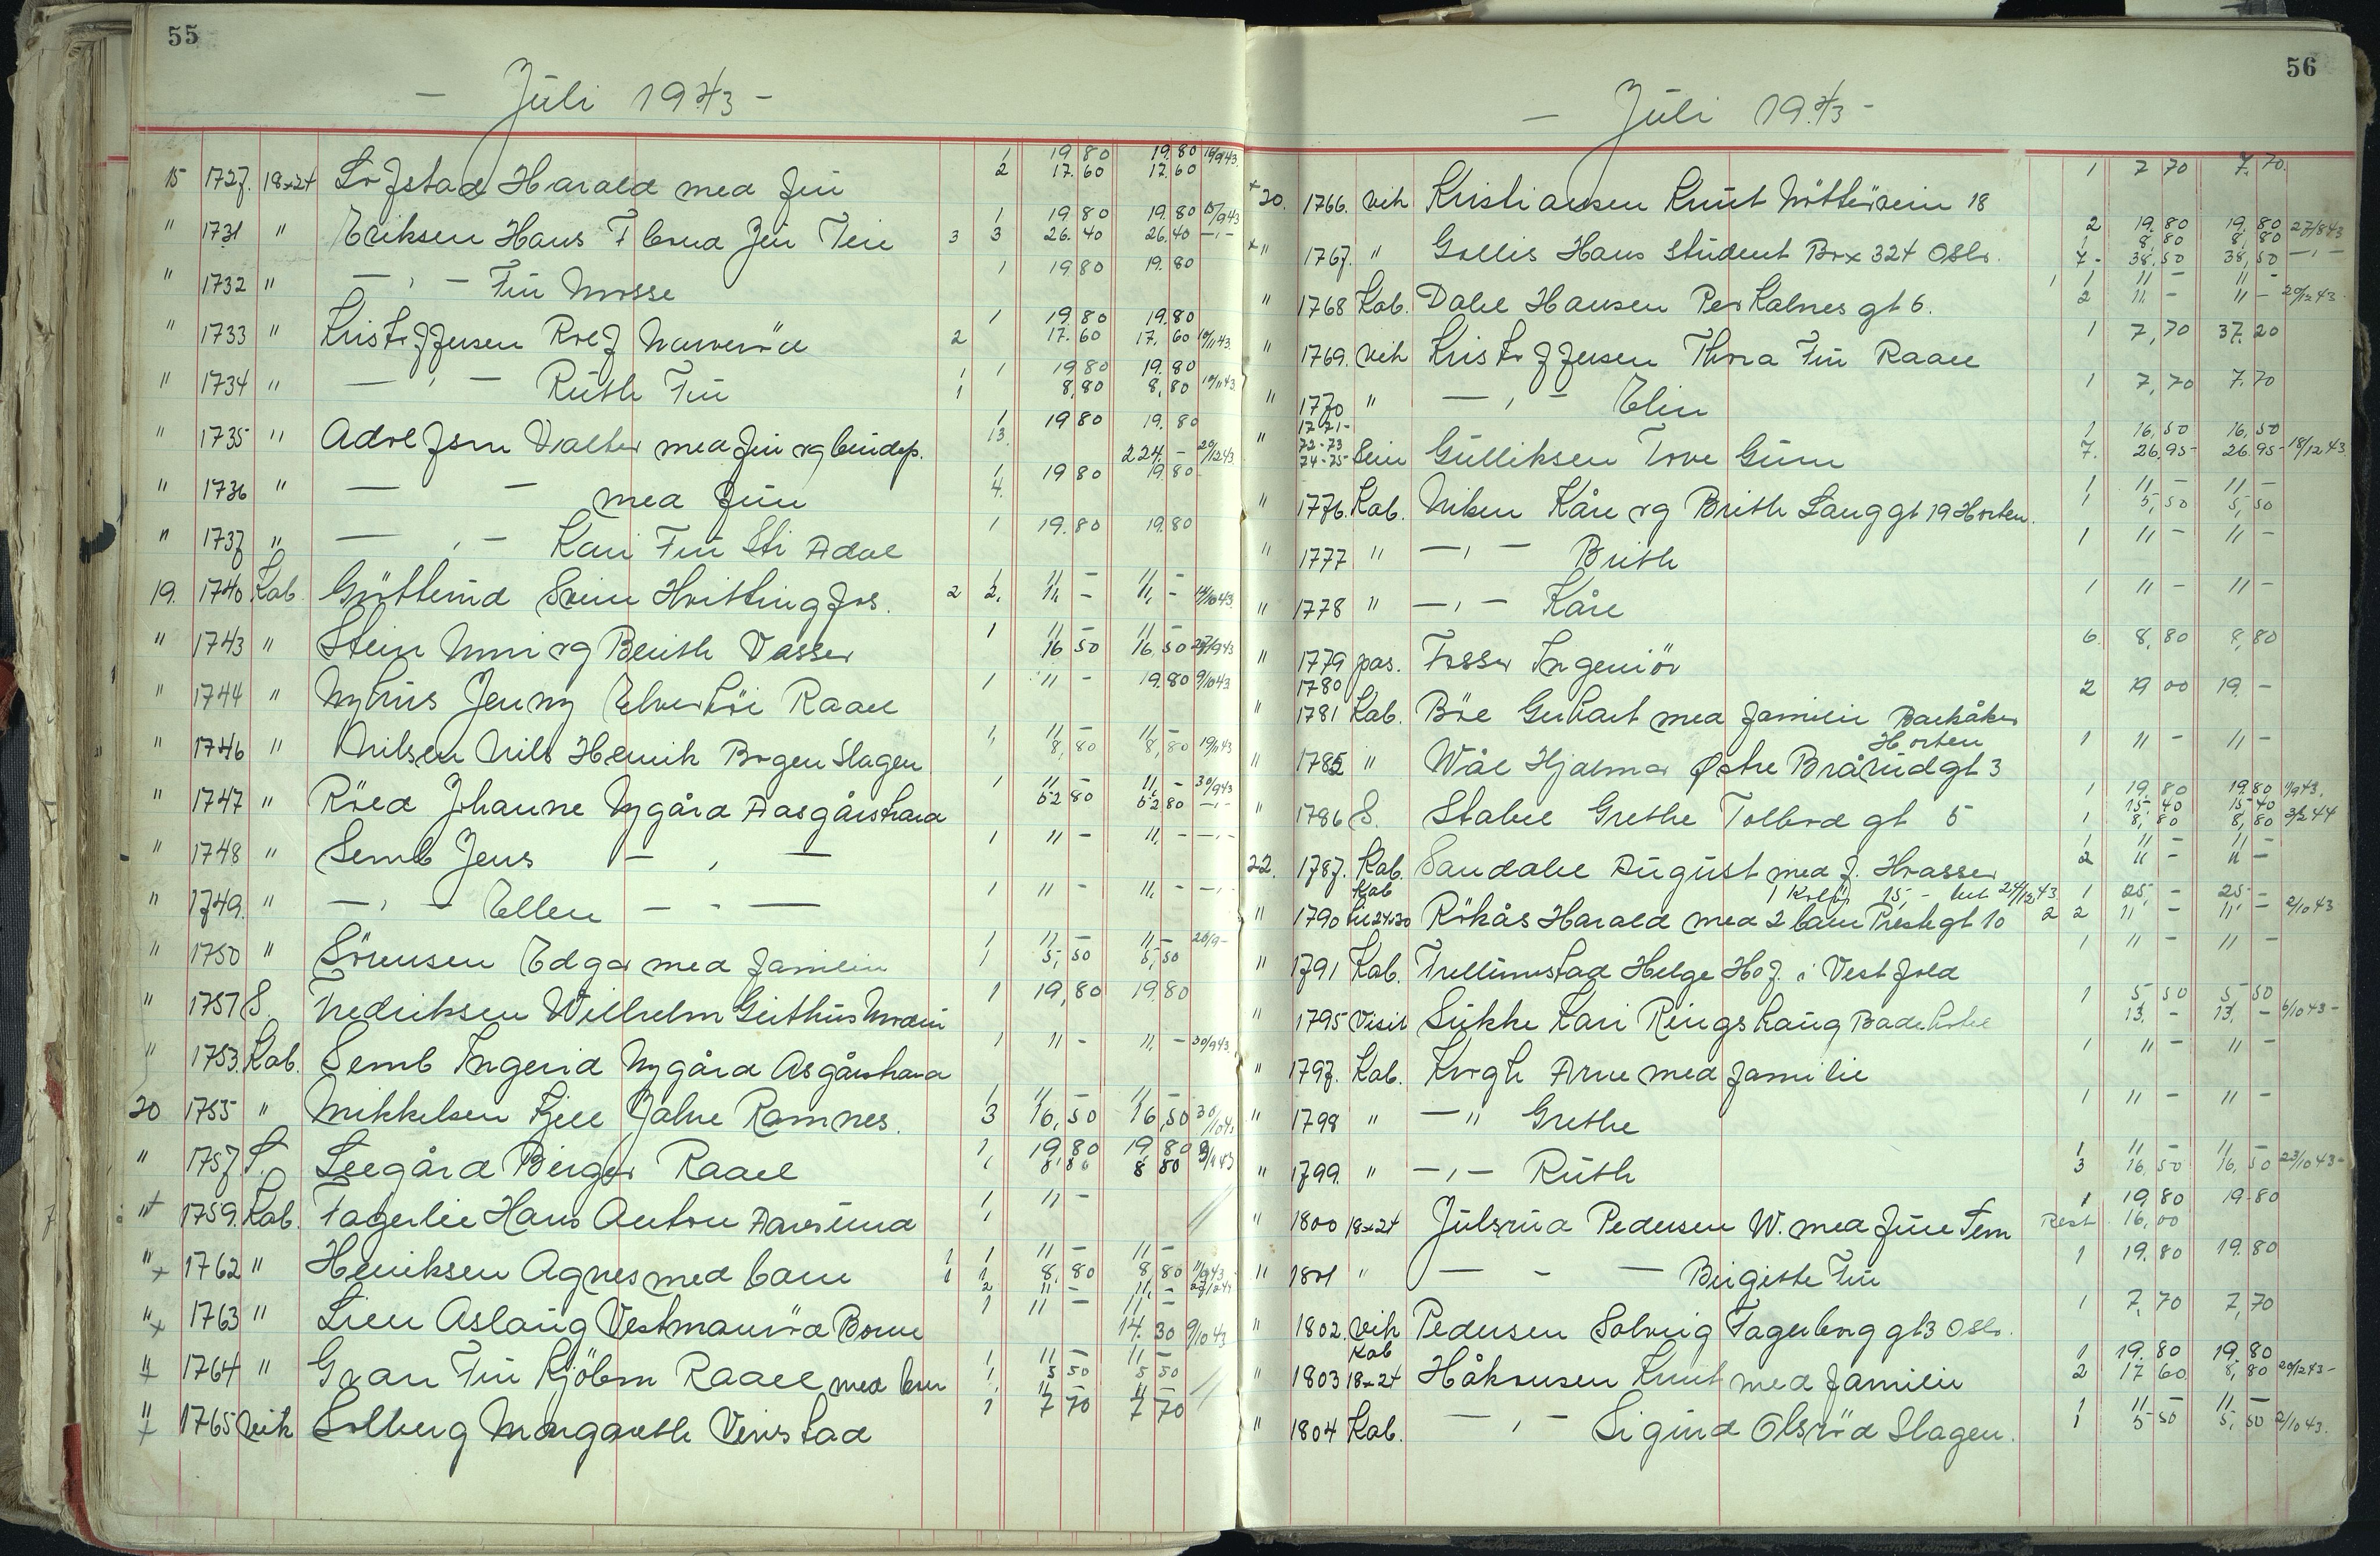 55
- Juli 1943 -
15 1727. 18x24 Lofstad Harald med fru 1 19 80 19.80 2 17.60 17.60
" 1731 " Eriksen Hans Fru Teie 3 1 19.80 19.80 3 26.40 26.40 -"-
" 1732 " - " - Fru Mosse 1 19 80 19.80
" 1733 " Kristoffersen Rolf 2 1 19.80 19.80 17.60 17.60
" 1734 " - " - Ruth Fru 1 19 80 19.80 1 8,80 8,80
" 1735 " Adolfsen Valter med fru og 1 19 80 19.80 13. 224.- 20/12 43.
" 1736 " - - med fru 1 19 80 19 80 4.
" 1737 " - " - Kari Fru Adal 1 19.80 19.80
19. 1740 Kab. Svein Hvittingfos. 2 1 11 - 11, - 2. 11, - 11, - 14/10 43
" 1743 " Stein Unni og Berith Vasser 1 11 - 11 - 16 50 16.50
" 1744 " Nyhus Jenny Elverhöi Raael 1 11 - 19.80 9/10 43
" 1746 " Nilsen Nils Henrik Bogen Slagen 1, 11 - 11 - 8,80 8,80
" 1747 " Röed Johanne Nygård Aasgårstrand 1 11 - 11, - 30/9 43 52 80 52 80 -"-
" 1748 " Semb Jens - " - 1 11 - 11. - -"-
" 1749. " - " - Ellen - " - 1 11 - 11, - -"-
" 1750 " Sörensen Edgar med familie 1 11 - 11, - 1 5,50 5,50
" 1751 S. Fredriksen Wilhelm 1 19,80 19.80
" 1753. Kab. Semb Ingerid Nygård Asgårstrand 1 11 - 11, - 30/9 43
20 1755 " Mikkelsen Kjell Jahre Ramnes. 1 11 - 11 - 3 16,50 16,50
" 1757 S. Leegård Birger Raael 1, 19,80 19,80 1 8,80 8 80
" 1759. Kab. Fagerlie Hans Anton Aarosund 1 11 -
" 1762 " Henriksen Agnes med barn 1 1 11 - 11 - 1 1, 8,80 8,80 2 11 - 11, -
" 1763 " Lien Aslaug Vestmanröd Borre 1 11 - 11 - 14.30 9/10 43
" 1764 " Gran Fru Kjöbm Raael med barn 1 11 - 11 - 1, 5 50 5 50 11 - 11 -
" 1765 vik Solberg Margareth Vivestad 1 7 70 7 70
56
- Juli 19.43 -
20. 1766. vik Kristiansen Knut Nötteröven 18 1 7 70 7.70
" 1767. " Gollis Hans student Box 324 Oslo. 2 19.80 19.80 27/8 43 1 8,80 8,80 7 - 38,50 38,50 -"-
" 1768 Kab. Dahl Hansen Per Kalnes gt 6. 1 11 - 11 - 2 11 - 11 - 20/12 43
" 1769. vik Kristoffersen Thora Fru Raael 1 7,70 37.20
" 1770 " - " - Elin 1 7,70 7.70
" 1771- 72-73 74-75 Gulliksen Tove Gunn 1 16,50 16,50 7. 26,95 26.95 18/12 43
" 1776. Kab. Kåre og Brith Langgt 19 Horten. 1 11 - 11 - 1 5,50 5,50
" 1777 " - " - Brith 1 11 - 11 -
" 1778 " - " - Kåre 1 11 - 11 -
" 1779 pas. Fosser Ingeniör 6. 8,80 8,80
" 1780 1781 Kab. Böe Gerhart med familie Barkåker 2 19 00 19. -
" 1785 " Wåle Hjalmar Østre Brårudgt 3 Horten 1 11 - 11 -
" 1786 S. Stabel Grethe Tollbod gt 5 1 19.80 19.80 15.40 15.40 1 8,80 8,80 3/2 44
22. 1787. Kab. Sandahl August med f. Hvasser 1 11 - 11 - 2 11 - 11 -
" 1790 Kab 24x30 Rökås Harald med 2 barn Prestegt 10 2 1 25, - 25, - 2 11 - 11. - 2/10 43
" 1791 Kab. Trellumstad Helge Hof i Vestfold 1 11 - 11 -
" 1795 Visit Sukke Kari Ringshaug Badehotel 1 5 50 5 50 13. - 13. - 6/10 43 -
" 1797. Kab. Krogh Arne med familie 1 11 - 11 -
" 1798 " - " Grethe 1 11 - 11 -
" 1799. " - " - Ruth 1 11 - 11 - 3 16,50 16,50 23/10 43 -
" 1800 18x24 Julsrud Pedersen W. med frue Fem 1 19,80 19.80 Rest 16,00
" 1801 " - - - Birgitte Fru 1 19.80 19.80
" 1802. vik Pedersen Solveig Fagerborg gt 3 Oslo. 1 7,70 7,70
" 1803 Kab 18x24 Håkonsen Knut med familie 1 19.80 19.80 2 17 60 8,80 20/12 43 -
" 1804 Kab. - " - Sigurd Olsröd Slagen. 1 11 - 11 - 1 5 50 5,50 2/10 43.